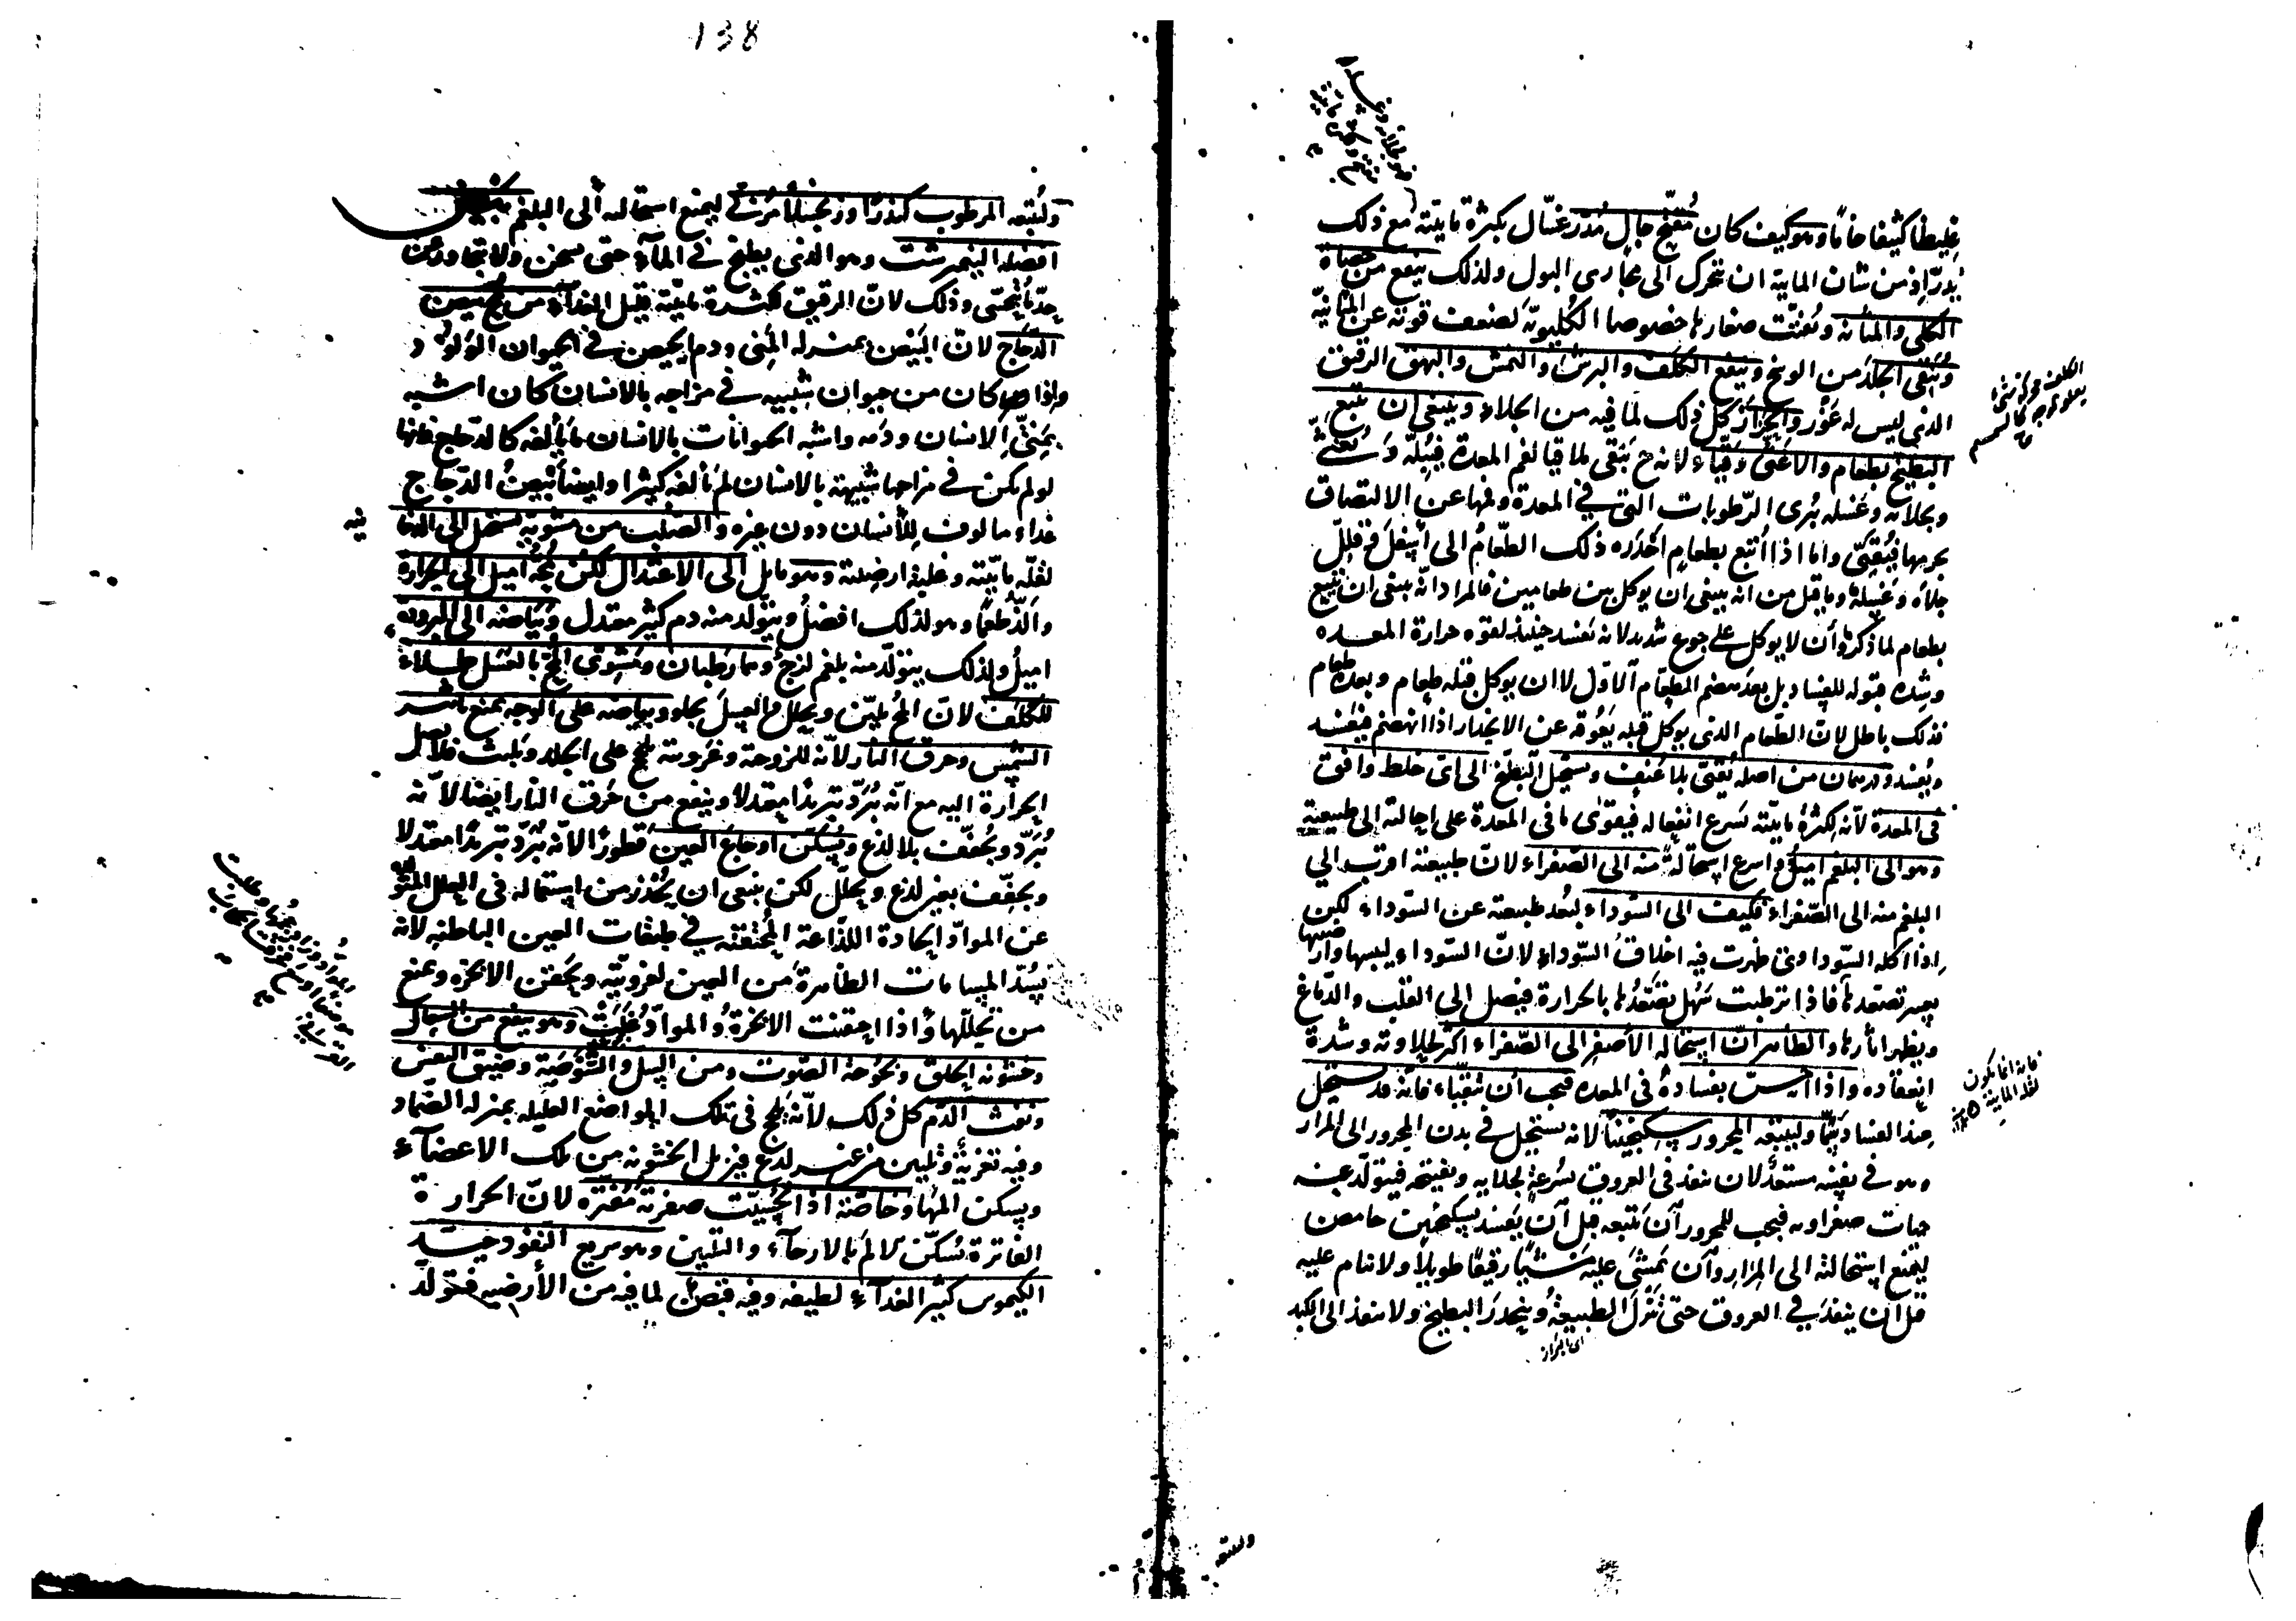 138
غليظا كثيفا خاما وهو كيف كان مفتح جال مدر غسال بكثرة مائيته مع ذلك
يدر اذ من شان المايية ان تتحرك الى مجارى البول ولذلك ينفع من حصاة
الكلى والمثانه ويفتت صغارها خصوصا الكليوية لضعف قوته عن المثانية
وينقى الجلد من الوسخ وينفع الكلف والبرش والنمش والبهق الرقيق
الذى ليس له غور والحزاز كل ذلك لما فيه من الجلاء وينبغى ان يتبع
البطيخ بطعام والا غثى وقيأ لانه ح يبقى ملاقيا لفم المعدة فيبله
وبجلائه وغسله يبرى الرطوبات التى فى المعدة وفمها عن الالتصاق
بجرمها فيقئ واما اذا اتبع بطعام احدره ذلك الطعام الى اسفل فيقلل
جلاه وغسله وما قيل من انه ينبغى ان يوكل بين طعامين فالمراد انه ينبغى ان يتبع
بطعام لما ذكر وان لا يوكل على جوع شديد لانه يفسد حينئذ لقوه حرارة المعده
وشده قبوله للفساد بل بعد هضم الطعام الاول لا ان يوكل قبله طعام وبعده طعام
فذلك باطل لان الطعام الذى يوكل قبله يعوقه عن الانحدار اذا انهضم فيفسد
ويفسد ودهمان من اصله يقئ بلا عنف ويستحيل البطيخ الى اى خلط وافق
فى المعدة لانه لكثرة مائيته يسرع انفعاله فيقوى ما فى المعدة على احالته الى طبيعته
وهو الى البلغم اميل واسرع استحالة منه الى الصفراء لان طبيعته اقرب الى
البلغم منه الى الصفراء فكيف الى السوداء لبعد طبيعته عن السوداء لكن
اذا اكله السوداوى ظهرت فيه اخلاق السوداء لان السوداء ليبسها وارضيتها
يعسر تصعدها فاذا ترطبت سهل تصعدها بالحرارة فيصل الى القلب والدماغ
ويظهر اثارها والظاهر ان استحاله الاصفر الى الصفراء اكثر لحلاوته وشدة
انعقاده واذا احس بفساده فى المعده فيجب ان يتقيأ فانه قد يستحيل
عند الفساد سما وليتبعه المحرور سكنجبينا لانه يستحيل فى بدن المحرور الى المرار
وهو فى نفسه مستعد لان ينفذ فى العروق بسرعة لجلايه وتفتيحه فيتولد عنه
حميات صفراويه فيجب للمحرور ان يتبعه قبل ان يفسد بسكنجبين حامض
ليمنع استحالته الى المرار وان يمشى عليه مشيا رقيقا طويلا ولا ينام عليه
قبل ان ينفذ فى العروق حتى تنزل الطبيعة وينحدر البطيخ ولا ينفذ الى الكبد
اى البراز
فانه انما يكون
لقلة المايية
وليتبعه
وليتبعه المرطوب كندرا وزنجبيلا مربى ليمنع استحالته الى البلغم بيض
افضله النيمرشت وهو الذى يطبخ فى الماء حتى يسخن ولا يتجاوز عن
حد ما يتحسى وذلك لان الرقيق لكثرة مائيته قليل الغذاء من مح بيض
الدجاج لان البيض بمنزله المنى ودم الحيض فى الحيوان الولود
واذا كان من حيوان شبيه فى مزاجه بالانسان كان اشبه
بمنى الانسان ودمه واشبه الحيوانات بالانسان ما يألفه كالدجاج فانها
لو لم يكن فى مزاجها شبيهة بالانسان لم تألفه كثيرا وايضا بيض الدجاج
غذاء مالوف للانسان دون غيره والصلب من مشويه يستحيل الى الدخا
نيه
لقلة مائيته وغلبة ارضيته وهو مايل الى الاعتدال لكن محه اميل الى الحرارة
والذ طعما وهو لذلك افضل ويتولد منه دم كثير معتدل وبياضه الى البرودة
اميل ولذلك يتولد منه بلغم لزج وهما رطبان ومشوى المح بالعسل طلاء
للكلف لان المح يلين ويحلل والعسل يجلو وبياضه على الوجه يمنع تاثير
الشمس وحرق النار لانه للزوجة وغروية يلح على الجلد ويلبث فلا يصل
الحرارة اليه مع انه يبرد تبريدا معتدلا وينفع من حرق النار ايضا لانه
يبرد ويجفف بلا لذع ويسكن اوجاع العين قطورا لانه يبرد تبريدا معتدلا
ويجفف بغير لذع ويحلل لكن ينبغى ان يحذر من استعماله فى العلل المتولده
عن المواد الحادة اللذاعة المحتقنة فى طبقات العين الباطنه لانه
يسد المسامات الظاهرة من العين لغرويته ويحقن الابخره ويمنع
من تحللها واذا احتقنت الابخرة والمواد غلت وهو ينفع من السعال
وخشونه الحلق وبحوحة الصوت ومن السل والشوصة وضيق النفس
ونفث الدم كل ذلك لانه يلح فى تلك المواضع العليله بمنزله الضماد
وفيه تغرية وتليين من غير لذع فيزيل الخشونه من تلك الاعضاء
ويسكن المها وخاصة اذا تحسيت صفرته مفترة لان الحرارة
الفاترة تسكن الالم بالارخاء والتليين وهو سريع النفوذ جيد
الكيموس كثير الغذاء لطيفه وفيه قبض لما فيه من الارضيه فتولد